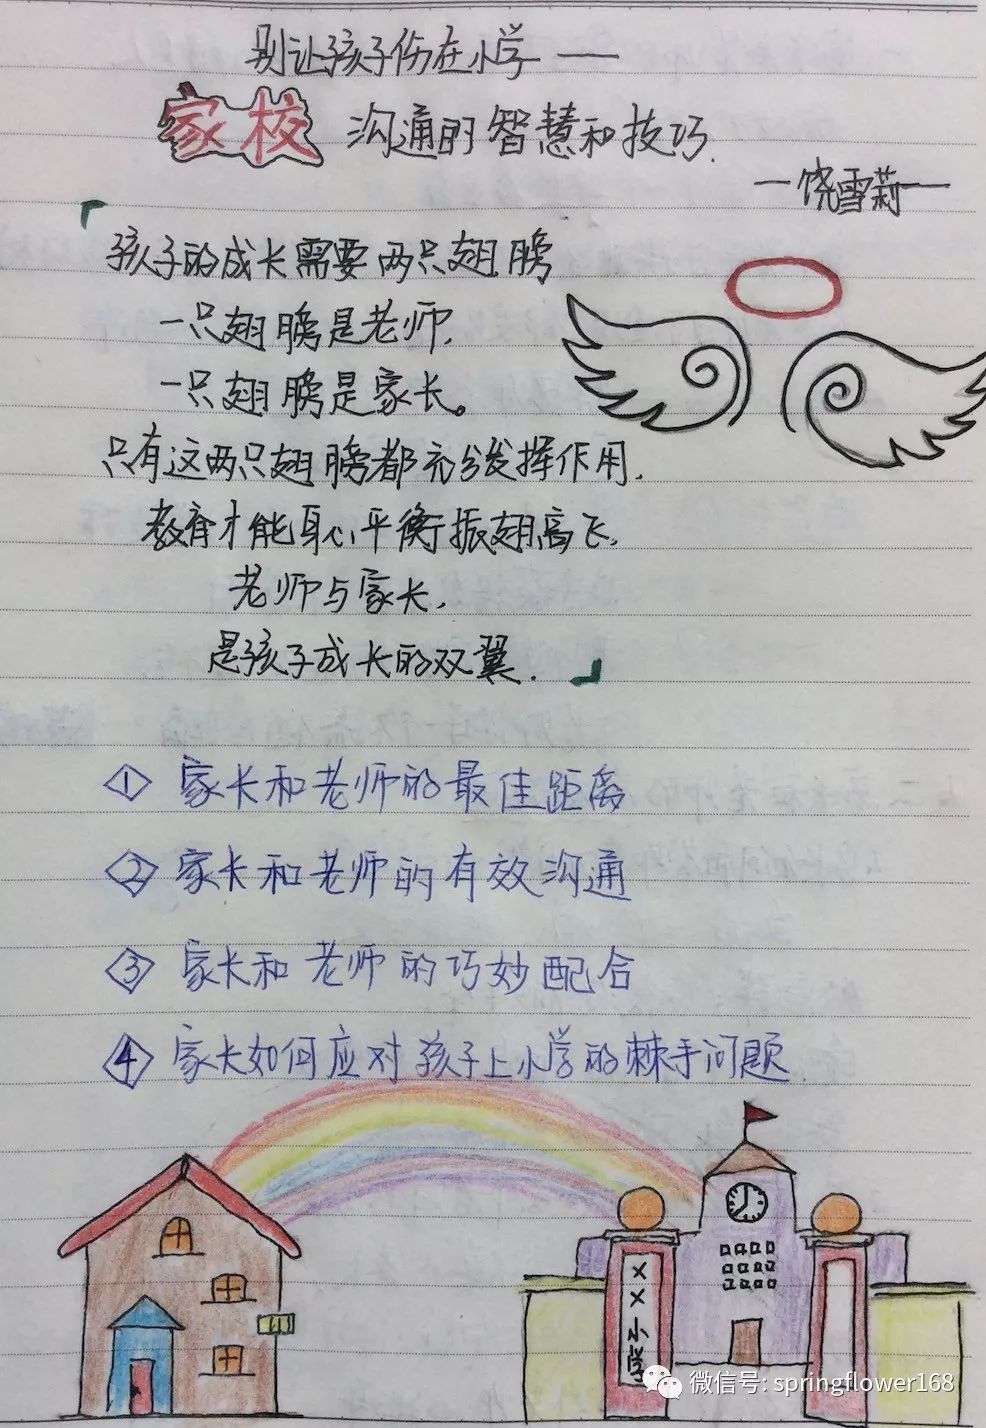 别让孩子伤在小学——
家校沟通的智慧和技巧.
—饶雪莉—
「孩子的成长需要两只翅膀
一只翅膀是老师,
一只翅膀是家长。
只有这两只翅膀都充分发挥作用,
教育才能身心平衡振翅高飞,
老师与家长,
是孩子成长的双翼.」
①家长和老师的最佳距离
②家长和老师的有效沟通
③家长和老师的巧妙配合
④家长如何应对孩子上小学的棘手问题.
××小学
微信号: springflower168